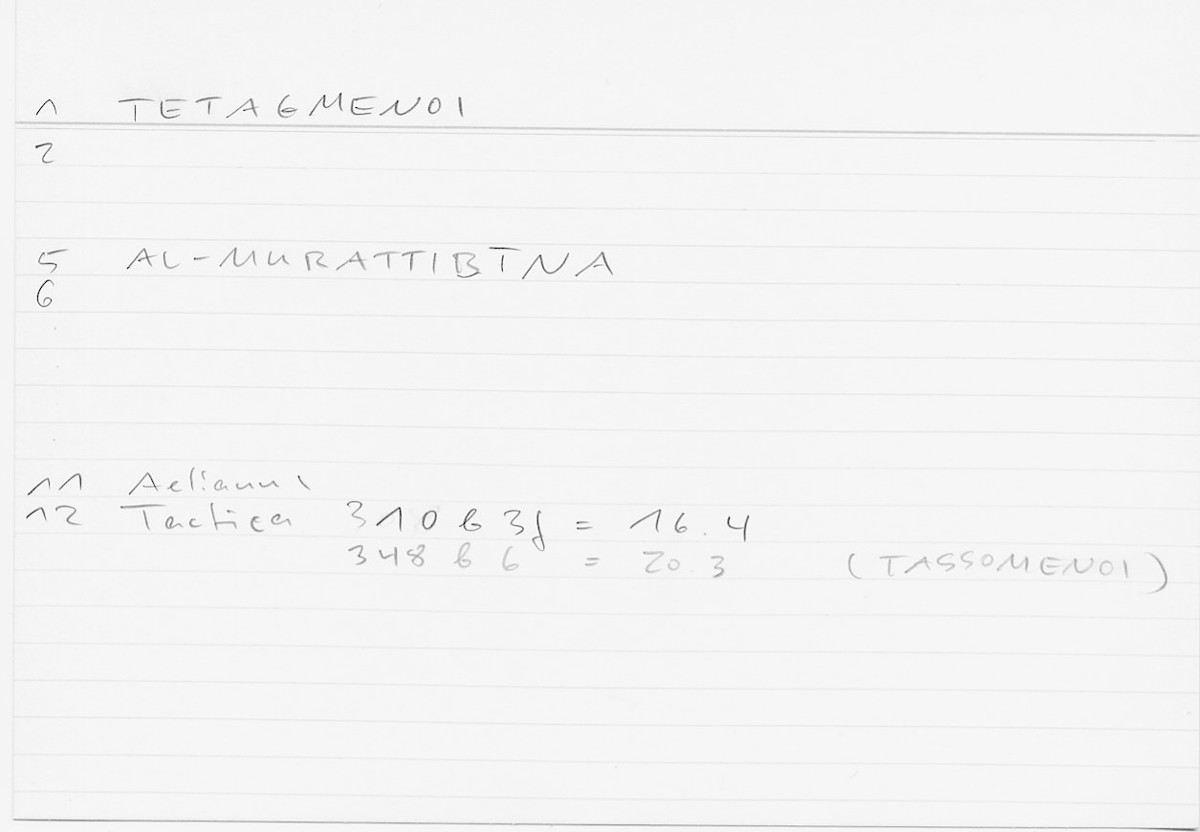 1 TETAGMENOI
2
5 AL-MURATTIBĪNA
6
11 Aelianus
12 Tactica 310 b 3f = 16.4
348 b 6 = 20.3 (TASSOMENOI)